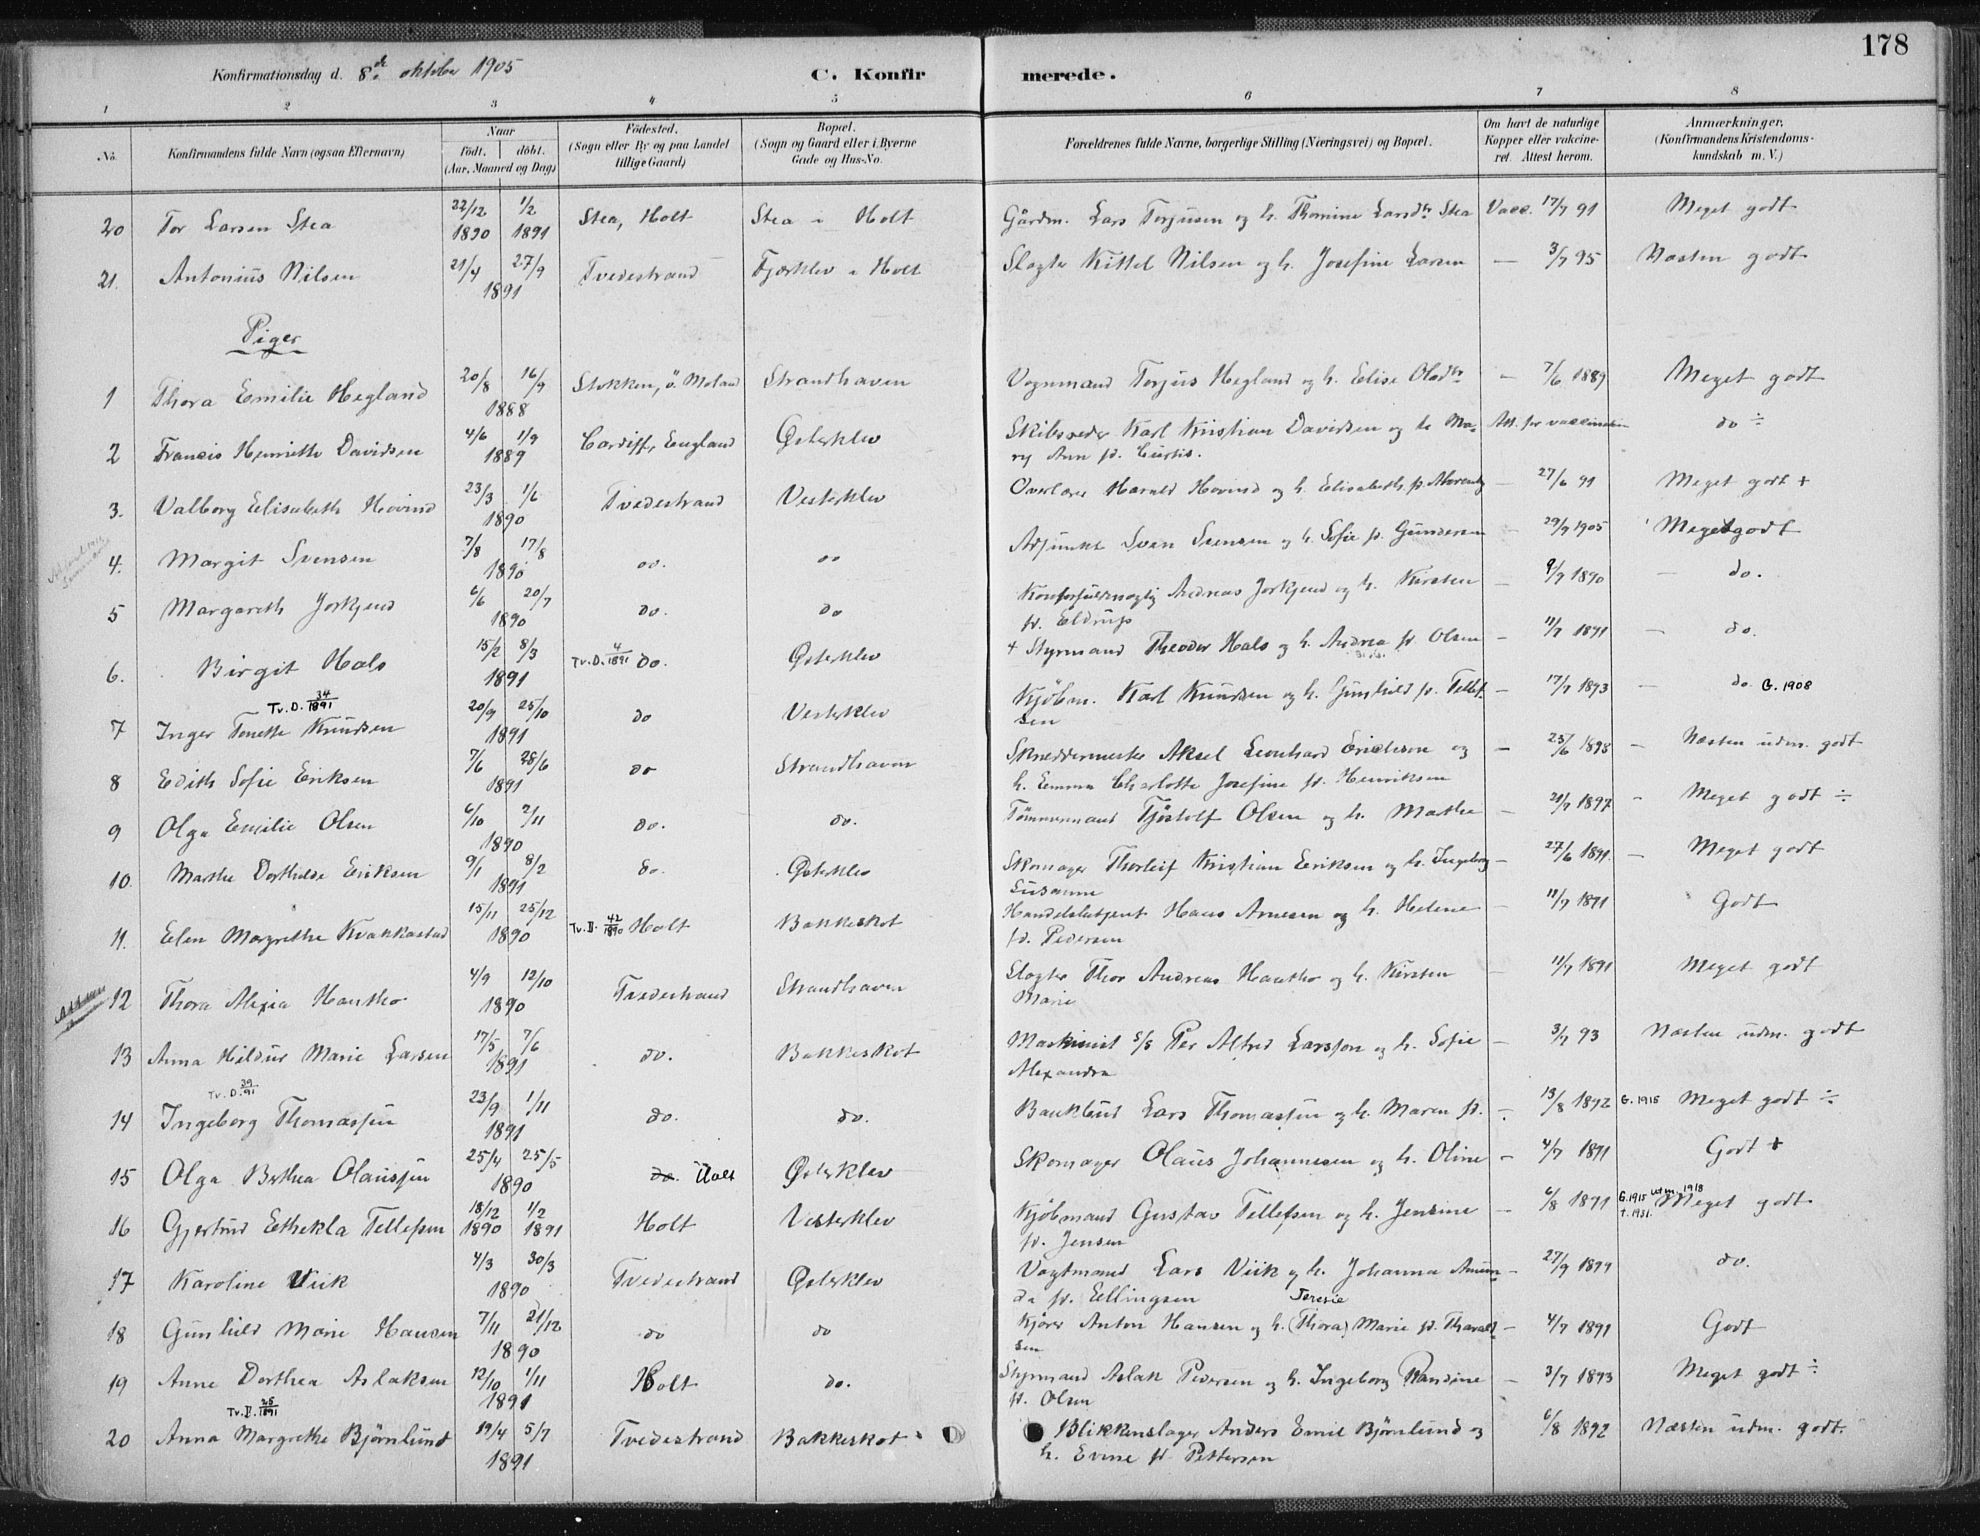 178
Konfirmationsdag d. 8de oktober 1905 C. Konfirmerede.
1 2 3 4 5 6 7 8
No. Konfirmandens fulde Navn (ogsaa Efternavn) Naar født. døbt. (Aar, Maaned og Dag) Fødested. (Sogn eller By og paa Landet tillige Gaard) Bopæl. (Sogn og Gaard eller i Byerne Gade og Hus-No. Forældrenes fulde Navne, borgerlige Stilling (Næringsvei) og Bopæl. Om havt de naturlige Kopper eller vakcineret. Attest herom. Anmærkninger. (Konfirmandens Kristendomskundskab m. V.)
20 Tor Larsen Stea 22/12 1890 1/2 1891 Stea, Holt Stea i Holt Gårdm. Lars Torjusen og h. Thomine Larsdtr Stea Vacc. 17/7 91 Meget godt
21. Antonius Nilsen 21/4 27/9 1891 Tvedestrand Fjærklev i Holt Slagter Kittel Nilsen og h. Josefine Larsen — 3/7 95 Næsten godt
Piger
1 Thora Emilie Hegland 20/8 16/9 1888 Stokken, ö. Moland Strandhaven Vognmand Torjus Hegland og h. Elise Olsdtr — 7/6 1889 Meget godt
2 Francis Henriette Davidsen 4/6 1/9 1889 Cardiff, England Østerklev Skibsreder Karl Kristian Davidsen og h. Ma-
ry Ann f. Curtis. Att. for vaccination do ÷
3. Valborg Elisabeth Hovind 23/3 1/6 1890 Tvedestrand Vesterklev Overlærer Harald Hovind og h. Elisabeth f. — 27/6 91 Meget godt +
4. Margit Svensen 7/8 17/8 1890 do. do Adjunkt Sven Svensen og h. Sofie f. Gundersen — 29/9 1905 Meget godt
5 Margareth Jorkjend 6/6 20/7 1890 do. do Andreas Jorkjend og h. Kirsten
f. Eldrup — 9/7 1890 — do.
6. Birgit Hals 15/2 8/3 1891 Tv.D. 4/1891 do. Østerklev + Styrmand Theodor Hals og h. Andrea f. Olsen — 11/7 1891 — do.
Tv.D. 34/1891
7 Inger Tonette Knudsen 20/9 25/10 1891 do Vesterklev Kjöbm. Karl Knudsen og h. Gunhild f. Tellef-
sen — 17/7 1893 — do G. 1908
8 Edith Sofie Eriksen 7/6 28/6 1891 do Strandhaven Skreddermester Aksel Leonhard Erichsen og
h. Emma Charlotte Josefine f. Henriksen — 23/6 1898 — Næsten udm. godt
9 Olga Emilie Olsen 6/10 2/11 1890 do. do. Tömmermand Tjöstolf Olsen og h. Marthe — 21/7 1897 — Meget godt ÷
10. Marthe Dorthude Eriksen 9/1 8/2 1891 do. Østerklev Skomager Thorleif Kristian Eriksen og h. Ingeborg
Susanne — 27/6 1891. — Meget godt
11. Elen Margrethe Kvakkestad 15/11 25/12 1890 Tv.D. 42/1890 Holt Bakkeskot Handelsbetjent Hans Arnesen og h. Helene
f. Pedersen — 11/7 1891 Godt
12 Thora Alexia Hantho 4/9 12/10 1890 Tvedestrand Strandhaven Slagter Thor Andreas Hantho og h. Kirsten
Marie — 11/7 1891 Meget godt
13 Anna Hildur Marie Larsen 17/5 7/6 1891 do. Bakkeskot Maskinist s/s Per Alfred Larsson og h. Sofie
Alexandra — 3/7 93 Næsten udm. godt
Tv.D. 39/91
14 Ingeborg Thomassen 23/9 1/11 1891 do. do. Bankbud Lars Thomassen og h. Maren f. — 13/8 1892 G. 1915 Meget godt ÷
15 Olga Berthea Olaussen 25/4 25/5 1890 do. Holt Østerklev Skomager Olaus Johannesen og h. Oline — 4/7 1891 Godt +
16 Gjertrud Ethekla Tellefsen 18/12 1890 1/2 1891 Holt Vesterklev Kjöbmand Gustav Tellefsen og h. Jensine
f. Jensen — 6/8 1891 G. 1915 utm. 1918 t. 1931. Meget godt
17 Karoline Viik 4/3 30/3 1890 Tvedestrand Østerklev Vagtmand Lars Viik og h. Johanna Amun-
da f. Ellingsen — 27/9 1899 do.
Teresie
18 Gunhild Marie Hansen 7/11 21/12 1890 do do Kjörer Anton Hansen og h. (Thora) Marie f. Tharald-
sen — 4/7 1891 Godt
19 Anne Dorthea Aslaksen 12/10 1/11 1891 Holt do. Styrmand Aslak Pedersen og h. Ingeborg Randine
f. Olsen — 3/7 1893 Meget godt ÷
Tv.D. 25/1891
20 Anna Margrethe Bjørnlund 19/4 5/7 1891 Tvedestrand Bakkeskot Blikkenslager Anders Emil Bjørnlund og
h. Evine f. Pettersen 6/8 1892 Næsten udm. godt.